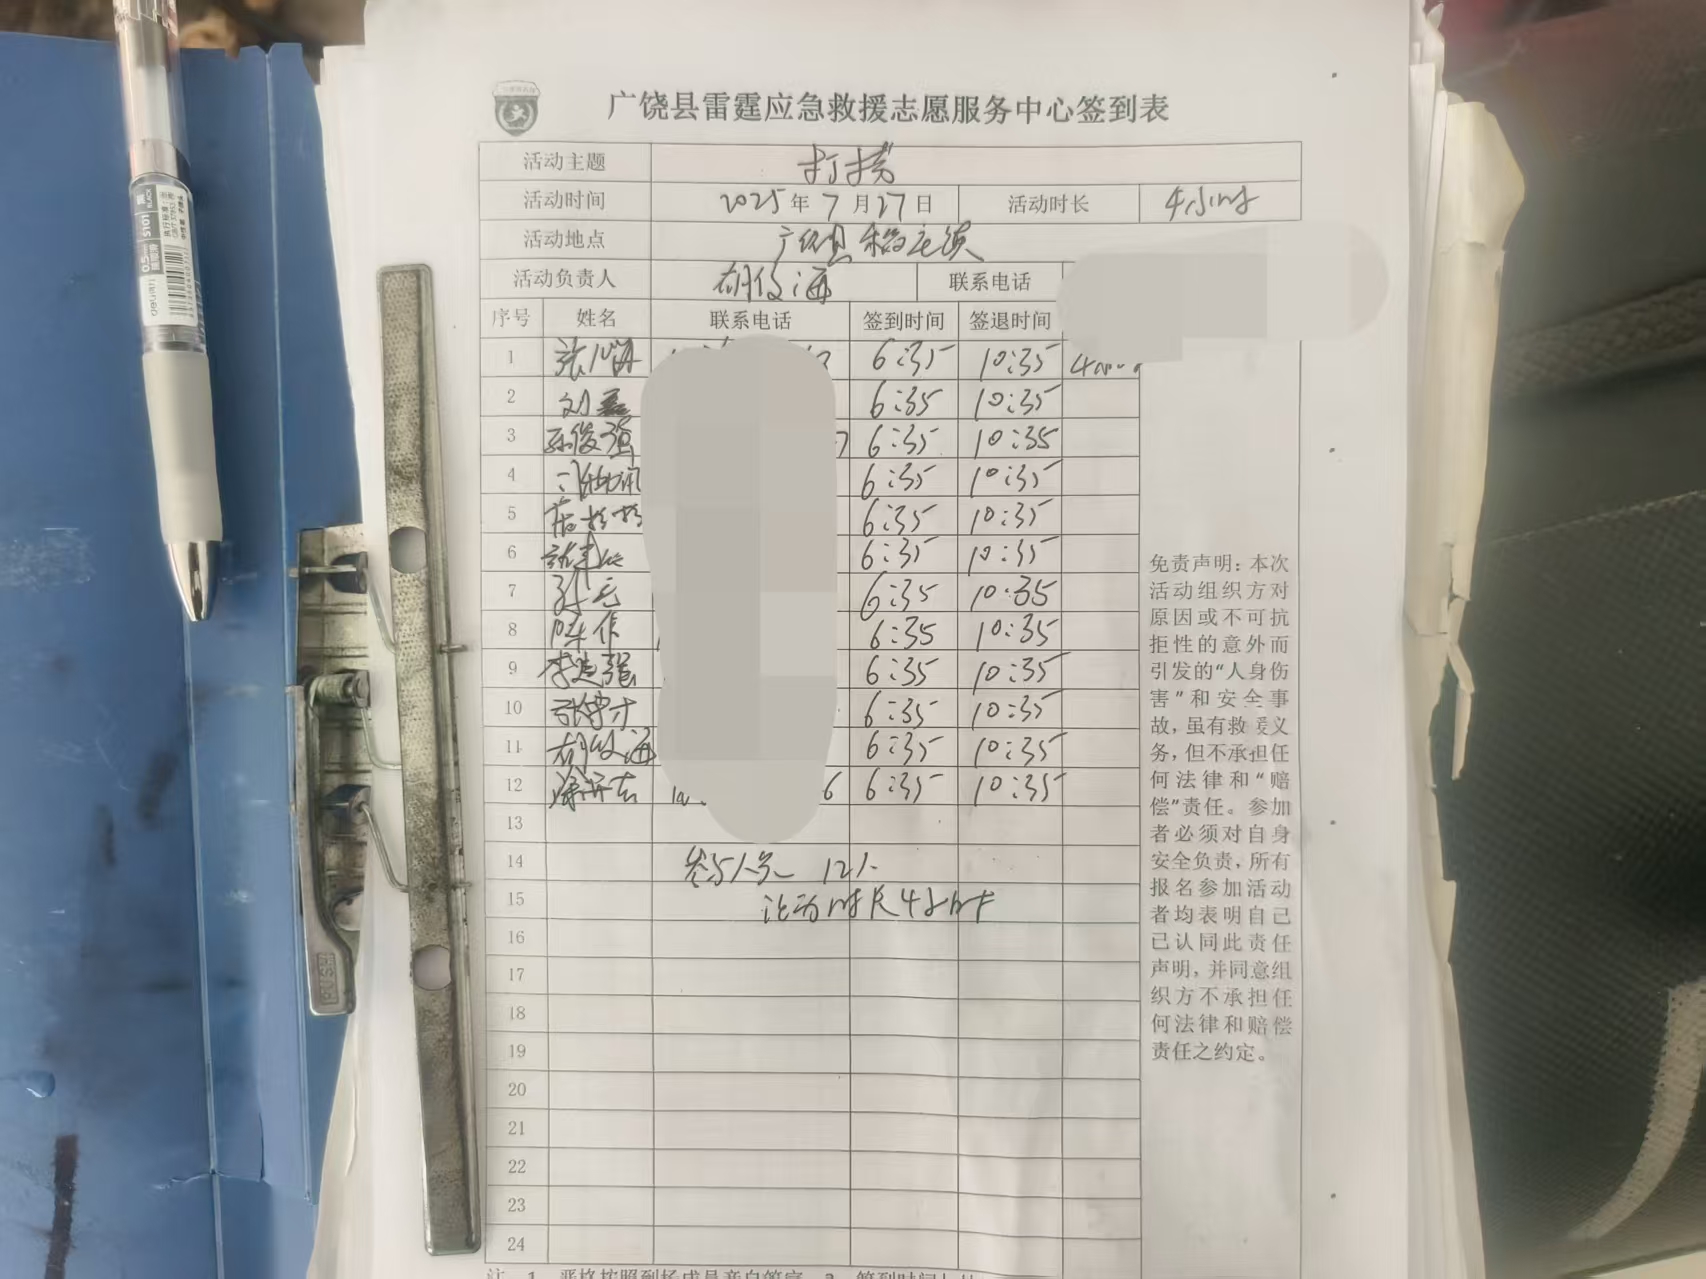 广饶县雷霆应急救援志愿服务中心签到表
活动主题 打捞
活动时间 2025年7月27日 活动时长 4小时
活动地点 广饶县稻庄镇
活动负责人 胡俊海 联系电话
序号 姓名 联系电话 签到时间 签退时间
1 6:35 10:35
2 刘磊 6:35 10:35
3 孙俊强 7 6:35 10:35
4 6:35 10:35
5 6:35 10:35
6 6:35 10:35
7 6:35 10:35
8 陈伟 6:35 10:35
9 李建强 6:35 10:35
10 6:35 10:35
11 胡俊海 6:35 10:35
12 6 6:35 10:35
13
14 参与人员 12人
15 活动时长4小时
16
17
18
19
20
21
22
23
24
免责声明：本次
活动组织方对
原因或不可抗
拒性的意外而
引发的“人身伤
害”和安全事
故，虽有救援义
务，但不承担任
何法律和“赔
偿”责任。参加
者必须对自身
安全负责，所有
报名参加活动
者均表明自己
已认同此责任
声明，并同意组
织方不承担任
何法律和赔偿
责任之约定。
PUSH
deli
0.5
S101
BLACK